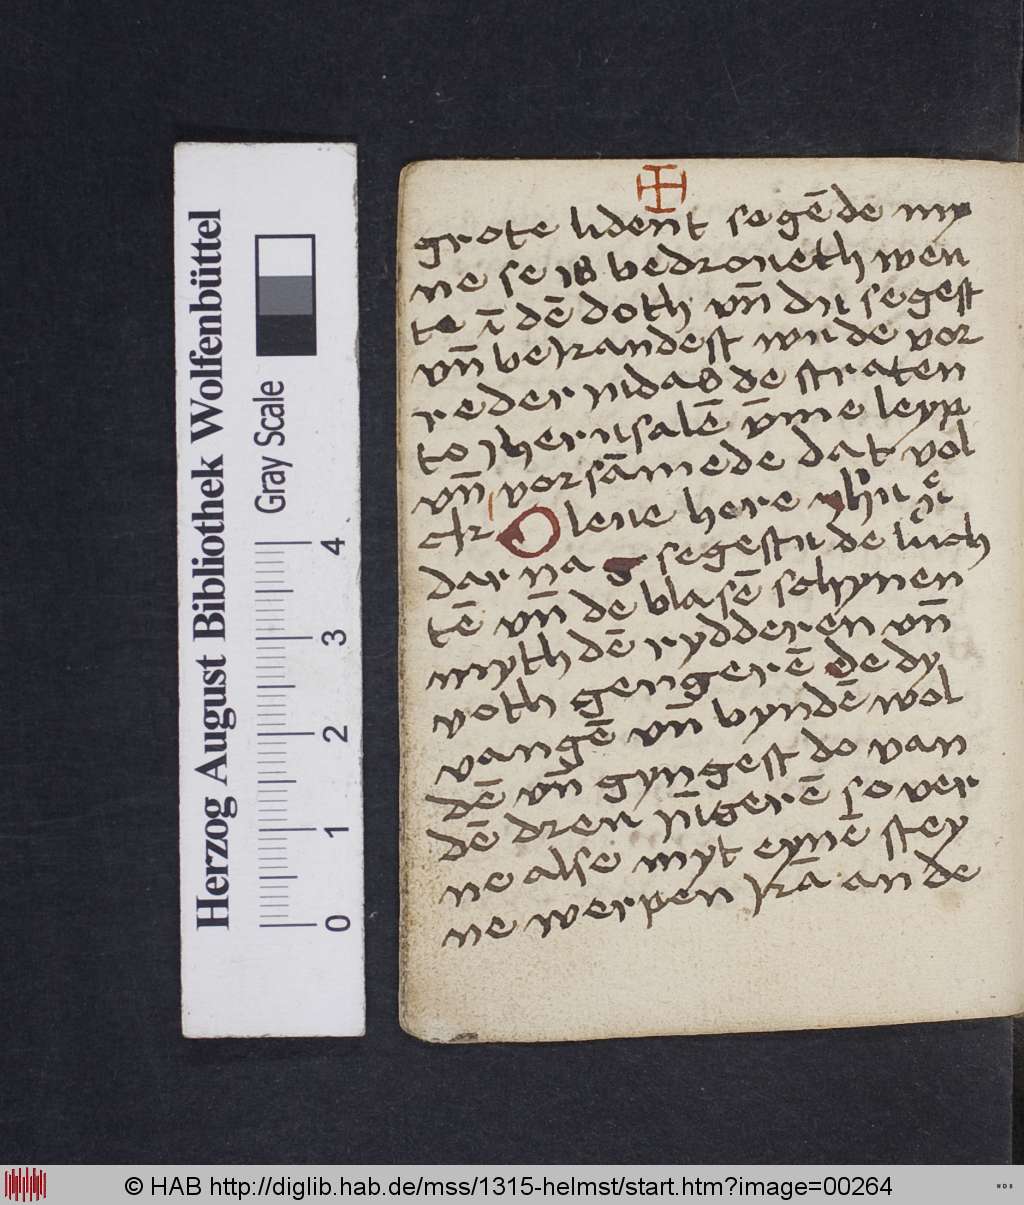 grote lident segēde my
ne se is bedroueth wen
te ī dē doth vn̄ du segest
vn̄ bekandest wu de vor
reder iudas de straten
to jherusalē v̄me leyp
vn̄ vorsāmede dat vol
ck O leue here
dar na segestu de luch
tē vn̄ de blasē schynen
myth dē rydderen vn̄
voth gengerē de dy
vangē vn̄ byndē wol
dē vn̄ gyngest do van
dē dren so ver
ne alse myt eynē stey
ne werpen kā an de
Herzog August Bibliothek Wolfenbüttel
Gray Scale
0 1 2 3 4
© HAB http://diglib.hab.de/mss/1315-helmst/start.htm?image=00264